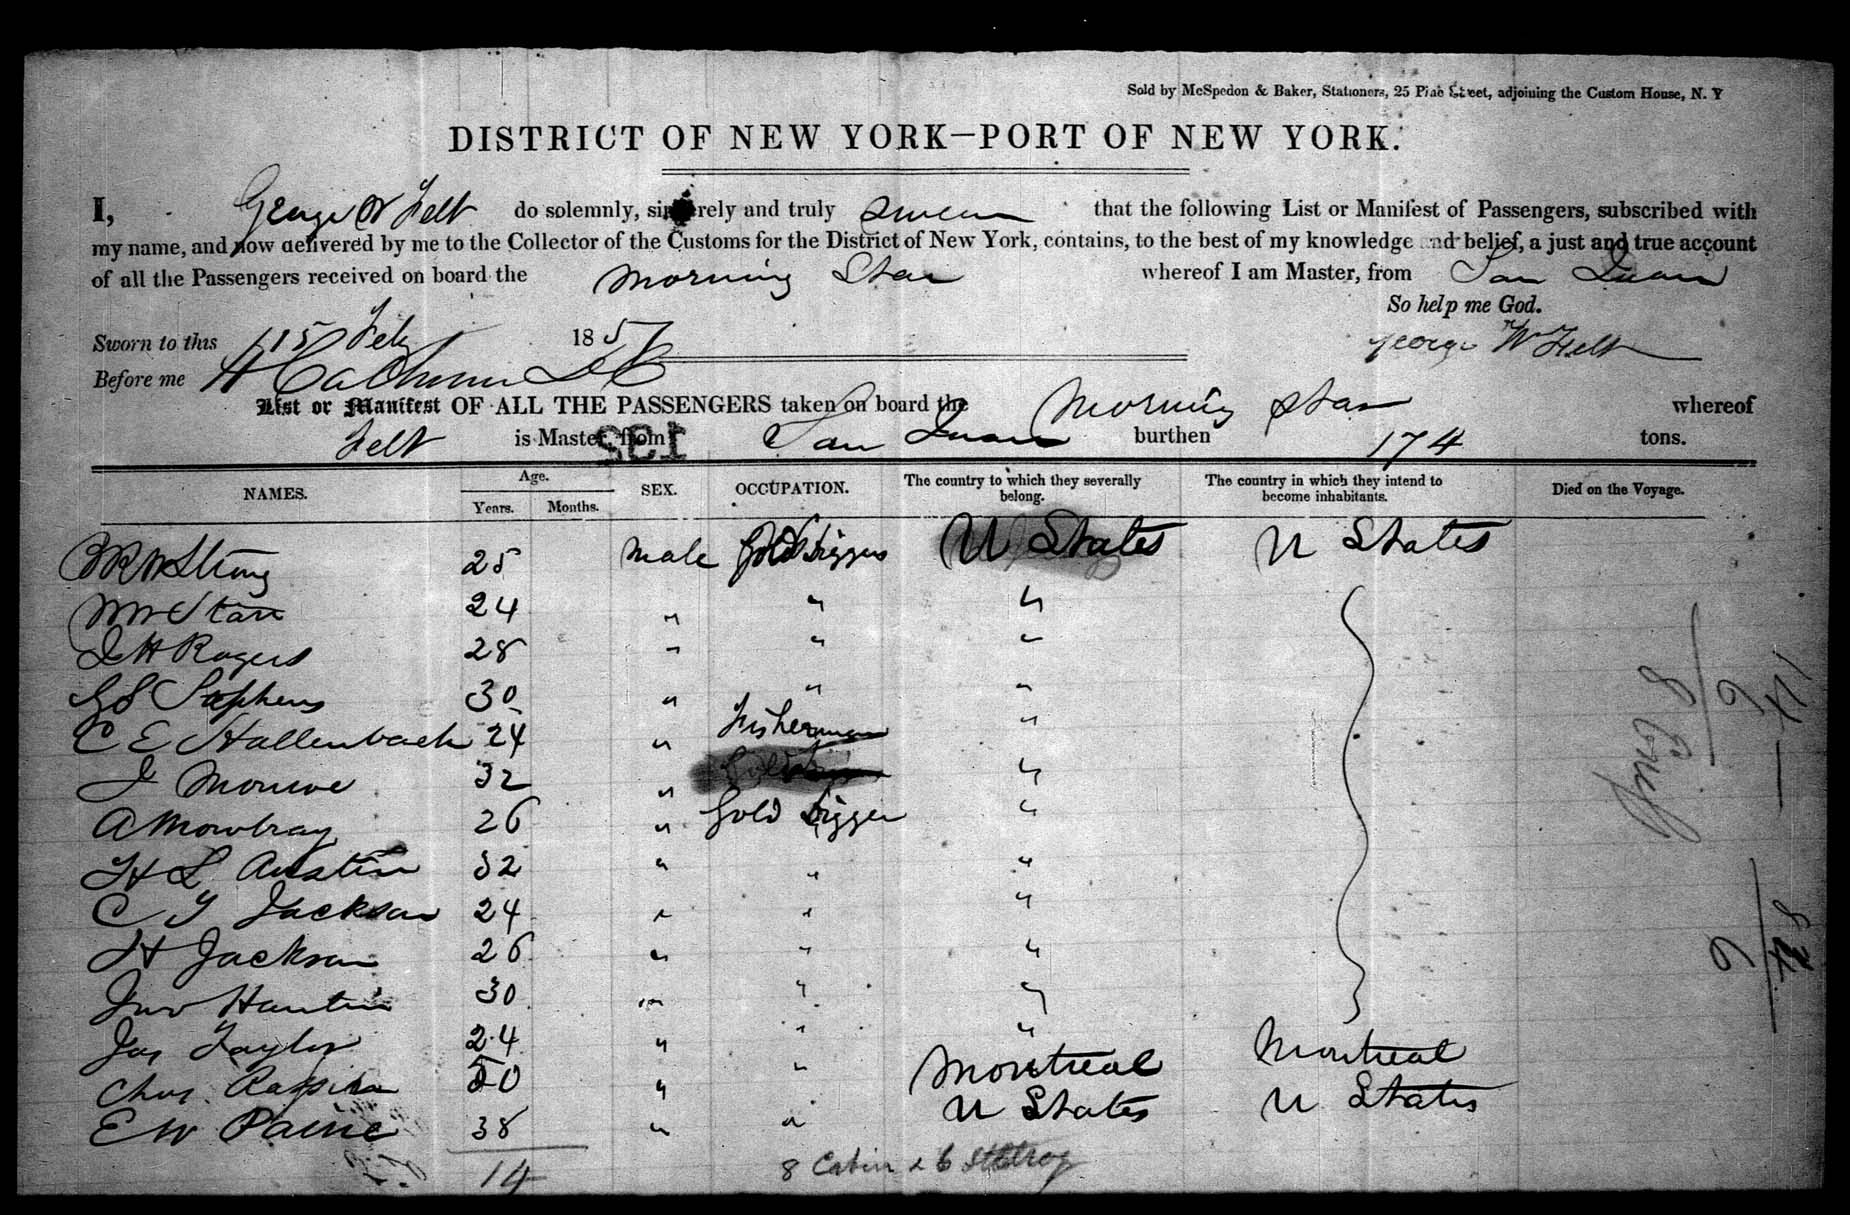 Sold by McSpedon & Baker, Stationers, 25 Pine Street, adjoining the Custom House, N. Y
DISTRICT OF NEW YORK—PORT OF NEW YORK.
I, George W Felt do solemnly, sincerely and truly swear that the following List or Manifest of Passengers, subscribed with
my name, and now delivered by me to the Collector of the Customs for the District of New York, contains, to the best of my knowledge and belief, a just and true account
of all the Passengers received on board the Morning Star whereof I am Master, from San Juan
So help me God.
Sworn to this 15 Feby 1851 George W Felt
Before me H Calhoun
List or Manifest OF ALL THE PASSENGERS taken on board the Morning Star whereof
Felt is Master, from San Juan burthen 174 tons.
192
NAMES. Age. Years. Months. SEX. OCCUPATION. The country to which they severally belong. The country in which they intend to become inhabitants. Died on the Voyage.
Strong 25 Male Gold Digger U States U States
Wm Starr 24 " " "
J H Rogers 28 " " "
G S Stephens 30 " " "
C E Hallenback 24 " Fisherman "
J Monroe 32 " "
A Mowbray 26 " Gold Digger "
H L Austin 32 " " "
C Y Jackson 24 " " "
H Jackson 26 " " "
Jno Huntin 30 " " "
Jas Taylor 24 " " "
Chas 50 " " Montreal Montreal
E W Paine 38 " " U States U States
14 8 Cabin & 6 Steerag